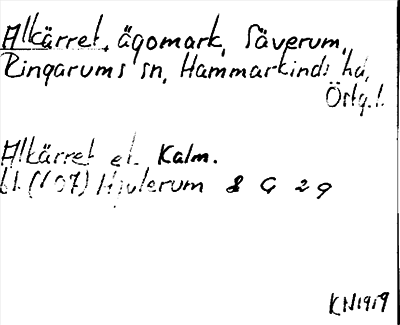 Alkärret, ägomark, Säverum,
Ringarums sn, Hammarkinds hd,
Östg.l.
Alkärret el. Kalm.
bl. (107) Hjulerum 8 G 2 g
KN1919